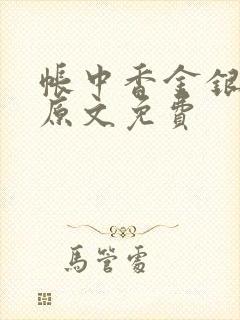 帳中香金銀
原文免費
馬管處